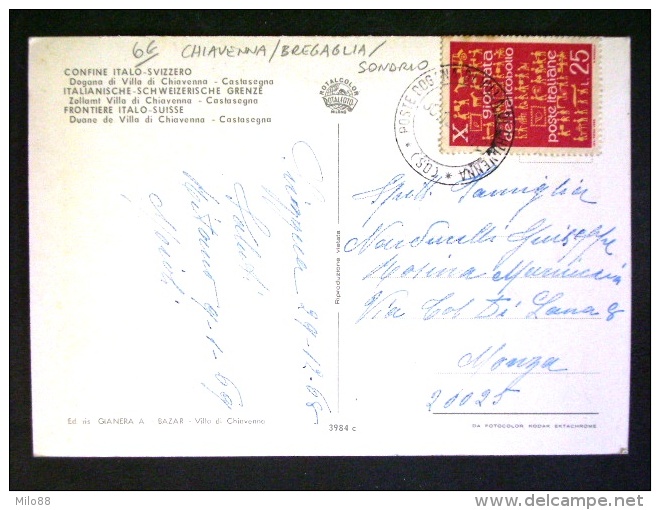 6€ CHIAVENNA/BREGAGLIA/
SONDRIO
CONFINE ITALO-SVIZZERO
Dogana di Villa di Chiavenna - Castasegna
ITALIANISCHE-SCHWEIZERISCHE GRENZE
Zollamt Villa di Chiavenna - Castasegna
FRONTIERE ITALO-SUISSE
Duane de Villa di Chiavenna - Castasegna
ROTALCOLOR
ROTALFOTO
MILANO
X giornata
del francobollo
poste italiane
25
* POSTE
(SO) *
Spett. Famiglia
Giuseppe
Via Col Di Lana 8
Monza
20025
29-12-68
Saluti
9-1-69
Riproduzione vietata
Ed. ris. GIANERA A. BAZAR - Villa di Chiavenna
3984 c
DA FOTOCOLOR KODAK EKTACHROME
Milo88
delcampe.net